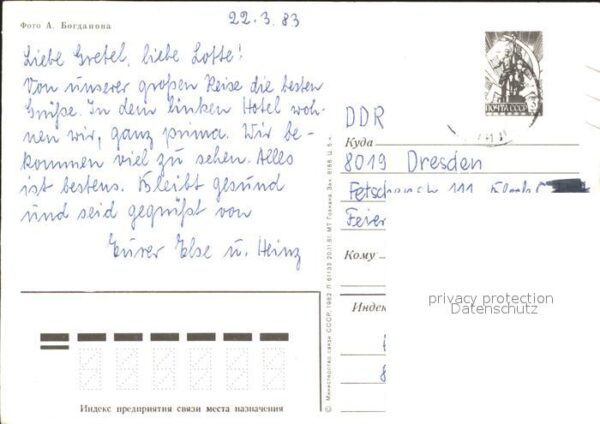 Фото А. Богданова
22.3.83
Liebe Gretel, liebe Lotte!
Von unserer großen Reise die besten
Grüße. In dem linken Hotel woh-
nen wir, ganz prima. Wir be-
kommen viel zu sehen. Alles
ist bestens. Bleibt gesund
und seid gegrüßt von
Eurer Else u. Heinz
Индекс предприятия связи места назначения
© Министерство связи СССР, 1982
ПОЧТА СССР
DDR
Куда
8019 Dresden
111
Feier
Кому
Индекс
privacy protection
Datenschutz